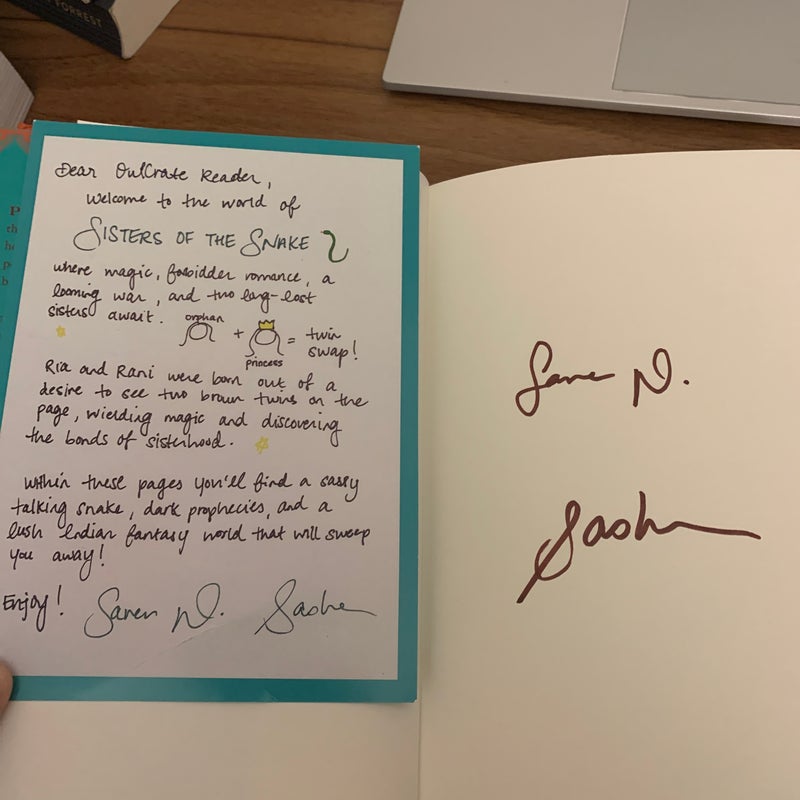 FORREST
P
th
h
p
b
Dear OwlCrate Reader,
Welcome to the world of
SISTERS OF THE SNAKE
where magic, forbidden romance, a
looming war, and two long-lost
sisters await.
orphan
+
princess
= twin
swap!
Ria and Rani were born out of a
desire to see two brown twins on the
page, wielding magic and discovering
the bonds of sisterhood.
Within these pages you'll find a sassy
talking snake, dark prophecies, and a
lush Indian fantasy world that will sweep
you away!
Enjoy! Saren N. Sasha
Sare N.
Sasha